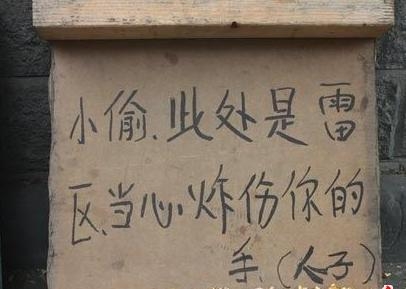 小偷、此处是雷
区、当心炸伤你的
手、(人子)